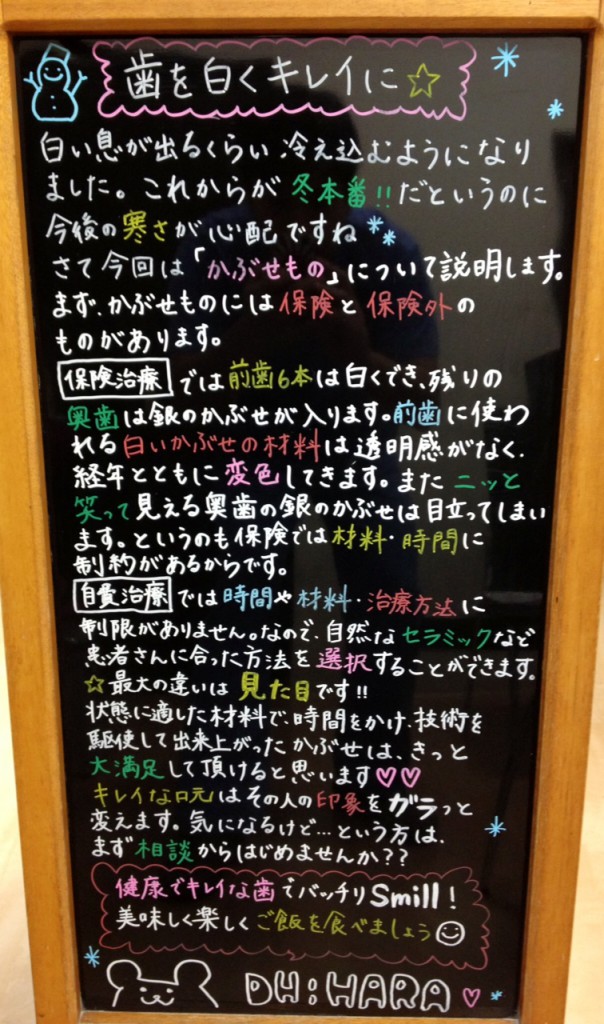 歯を白くキレイに☆
白い息が出るくらい冷え込むようになり
ました。これからが冬本番!!だというのに
今後の寒さが心配ですね
さて今回は「かぶせもの」について説明します。
まず、かぶせものには保険と保険外の
ものがあります。
保険治療では前歯6本は白くでき、残りの
奥歯は銀のかぶせが入ります。前歯に使わ
れる白いかぶせの材料は透明感がなく、
経年とともに変色してきます。またニッと
笑って見える奥歯の銀のかぶせは目立ってしまい
ます。というのも保険では材料・時間に
制約があるからです。
自費治療では時間や材料・治療方法に
制限がありません。なので、自然なセラミックなど
患者さんに合った方法を選択することができます。
☆最大の違いは見た目です!!
状態に適した材料で、時間をかけ、技術を
駆使して出来上がったかぶせは、きっと
大満足して頂けると思います♡♡
キレイな口元はその人の印象をガラっと
変えます。気になるけど…という方は、
まず相談からはじめませんか??
健康でキレイな歯でバッチリSmill!
美味しく楽しくご飯を食べましょう☺
DH:HARA♡